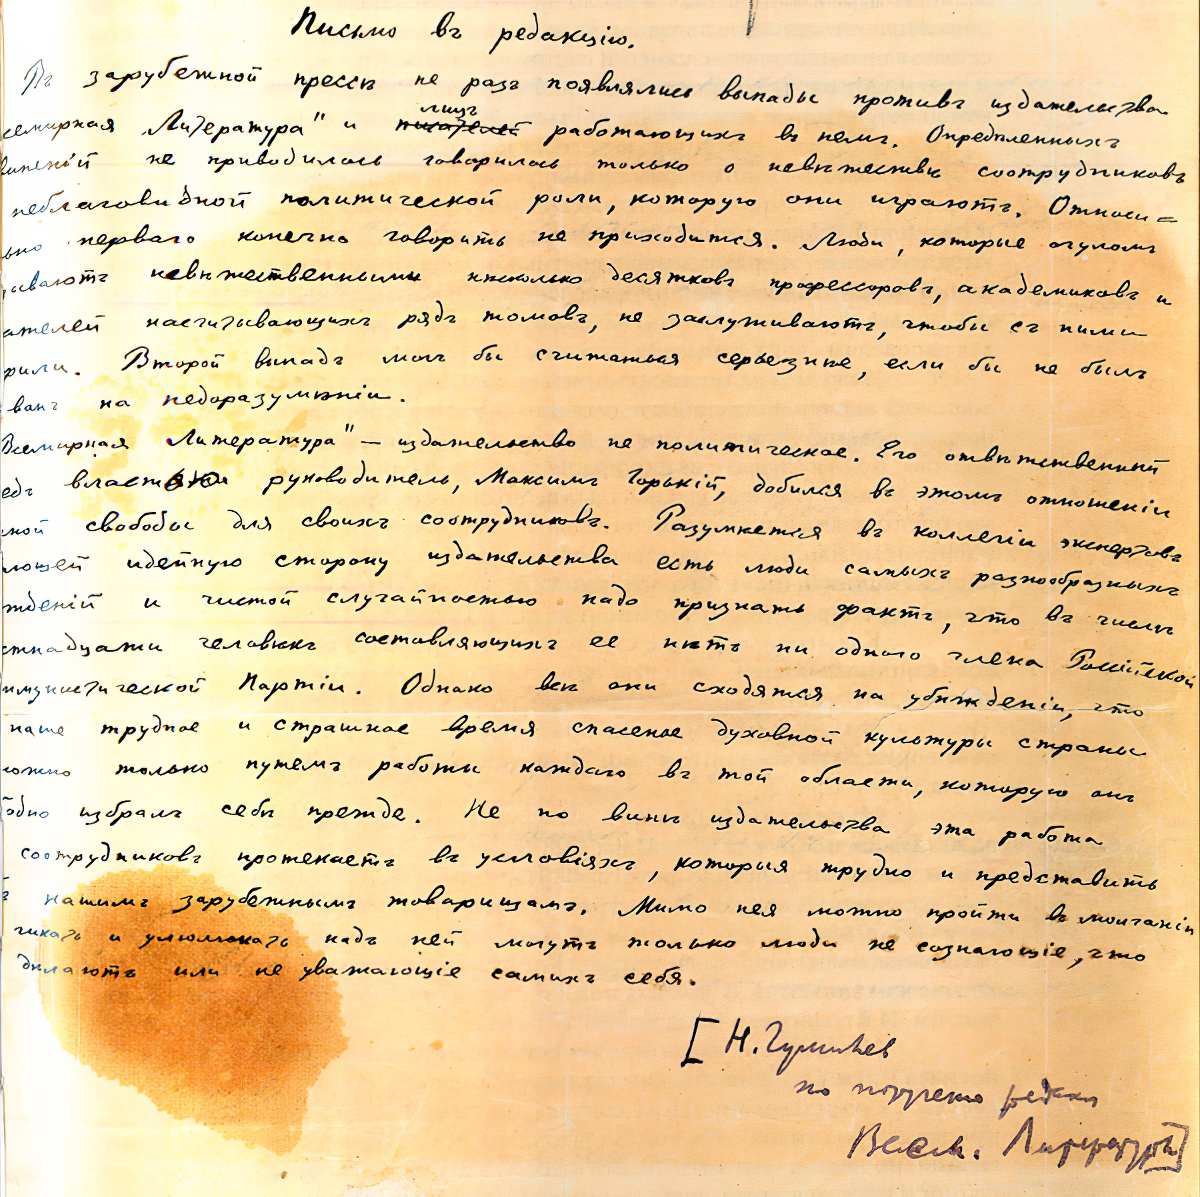 Письмо въ редакцію.
Въ зарубежной прессѣ не разъ появлялись выпады противъ издательства
семирная Литература" и писателей лицъ работающихъ въ немъ. Опредѣленныхъ
виненій не приводилось говорилось только о невѣжествѣ сотрудниковъ
неблаговидной политической роли, которую они играютъ. Относи=
ьно перваго конечно говорить не приходится. Люди, которые огуломъ
ываютъ невѣжественными нѣсколько десятковъ профессоровъ, академиковъ и
ателей насчитывающихъ рядъ томовъ, не заслуживаютъ, чтобы съ ними
рили. Второй выпадъ мог бы считаться серьезнѣе, если бы не былъ
ванъ на недоразумѣніи.
Всемирная Литература" — издательство не политическое. Его отвѣтственный
едъ властью руководитель, Максимъ Горькій, добился въ этомъ отношеніи
лной свободы для своихъ сотрудниковъ. Разумѣется въ коллегіи экспертовъ
ющей идейную сторону издательства есть люди самыхъ разнообразныхъ
жденій и чистой случайностью надо признать фактъ, что въ числѣ
стнадцати человѣкъ составляющихъ ее нѣтъ ни одного члена Россійской
ммунистической Партіи. Однако всѣ они сходятся на убѣжденіи, что
наше трудное и страшное время спасенье духовной культуры страны
можно только путемъ работы каждаго въ той области, которую онъ
бодно избралъ себѣ прежде. Не по винѣ издательства эта работа
сотрудниковъ протекаетъ въ условіяхъ, которыя трудно и представить
ѣ нашимъ зарубежнымъ товарищамъ. Мимо нея можно пройти въ молчаніи
гикать и улюлюкать надъ ней могутъ только люди не сознающіе, что
дѣлаютъ или не уважающіе самихъ себя.
[Н. Гумилев
по поручению редакц
Всем. Литературы]